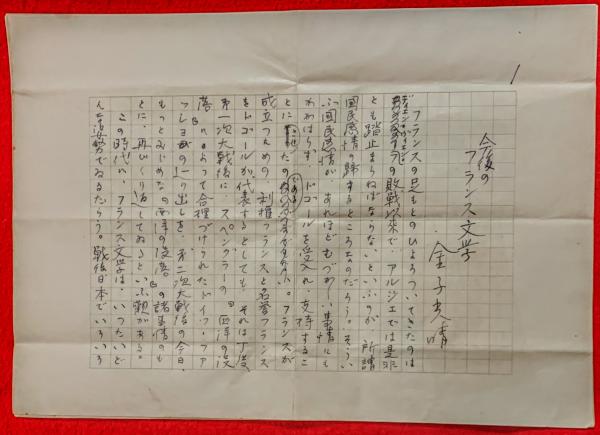 1
今後の
フランス文学
金子光晴
フランスの足もとのひょろついてきたのは
の敗戦以来で、アルジェでは是非
とも踏止まらねばならないといふのが、所謂
国民感情の歸するところなのだらう。そうい
ふ国民感情が、あれほどむづかしい事情にも
かかはらず、ドゴールを受入れ、支持するこ
とに たのである。フランスが
成立つための、利権フランスと名誉フランス
をドゴールが代表するとしても、それは丁度、
第一次大戦後に、スペングラーの『西洋の没
落』によって合理づけられたドイツ・ファ
ッショの り出しを、第二次大戦後の今日、
もっとみじめな『西洋の没落』の諸事情のも
とに、再びくり返してゐるといふ観がある。
この時代に、フランス文学は、いったいど
んな姿勢でゐるだらう。戦後日本でいろいろ